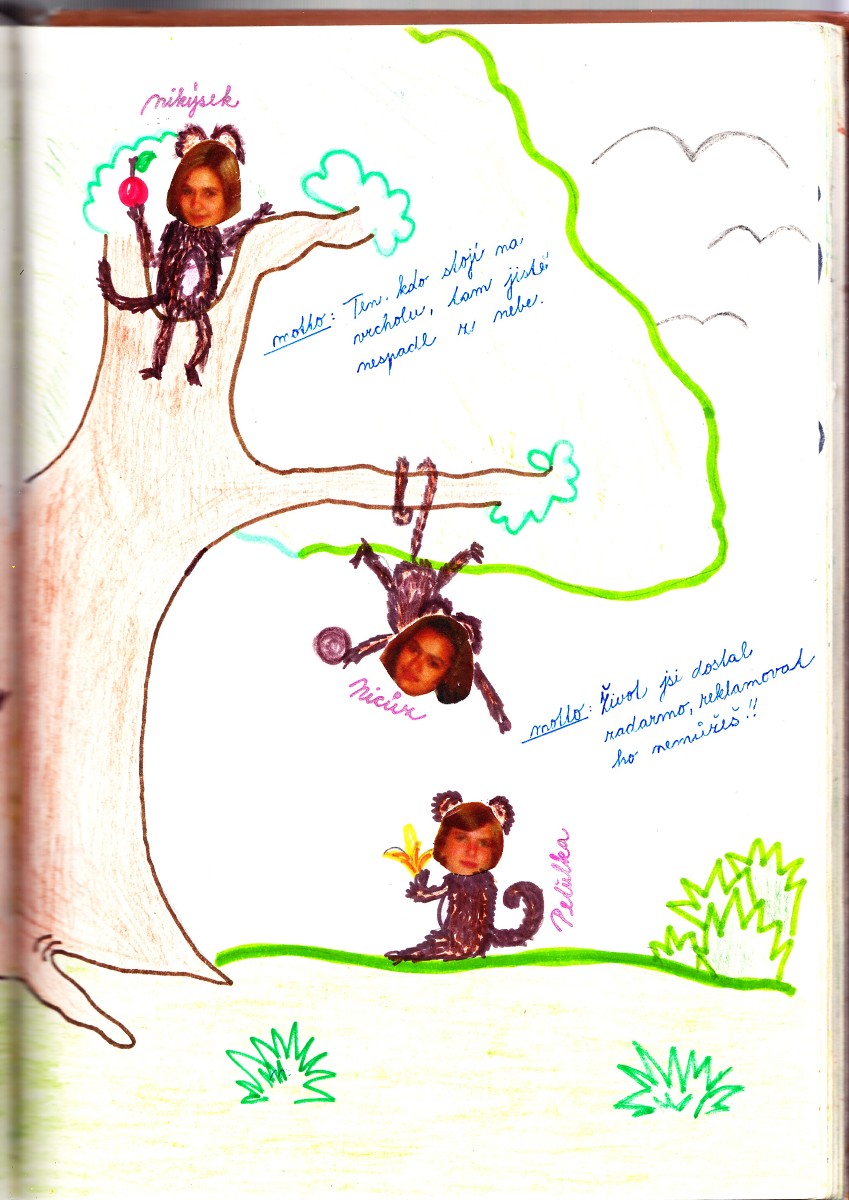 nikýsek
motto: Ten, kdo stojí na
vrcholu, tam jistě
nespadl z nebe.
Nicůz
motto: Život jsi dostal
zadarmo, reklamovat
ho nemůžeš!!
Peťulka